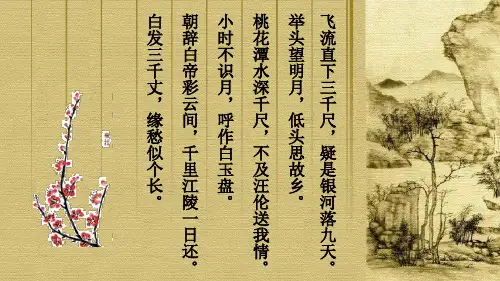 飞流直下三千尺，疑是银河落九天。
举头望明月，低头思故乡。
桃花潭水深千尺，不及汪伦送我情。
小时不识月，呼作白玉盘。
朝辞白帝彩云间，千里江陵一日还。
白发三千丈，缘愁似个长。